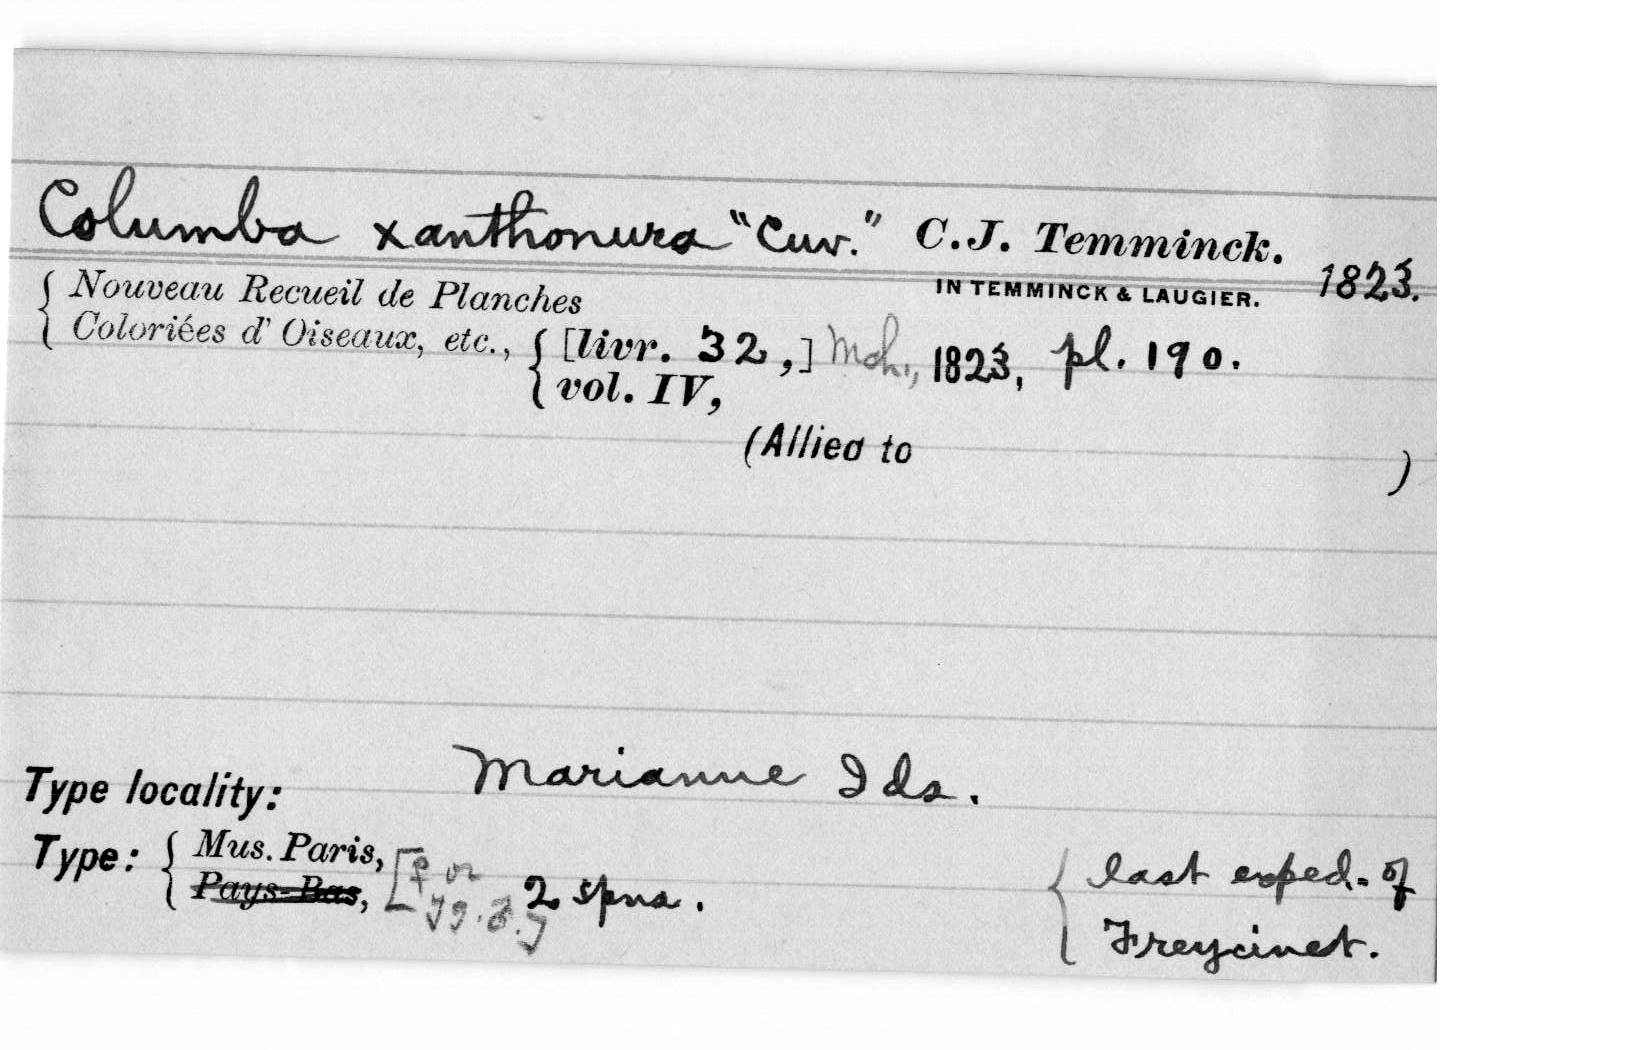 Columba xanthonura "Cuv." C.J. Temminck.
IN TEMMINCK & LAUGIER. 1823.
Nouveau Recueil de Planches
Coloriées d' Oiseaux, etc., [livr. 32,] Mch., 1823, pl. 190.
vol. IV,
(Allied to )
Type locality: Marianne Ids.
Type: Mus. Paris, [♀ or
Pays-Bas, yg. ♂.] 2 spns.
last exped. of
Freycinet.